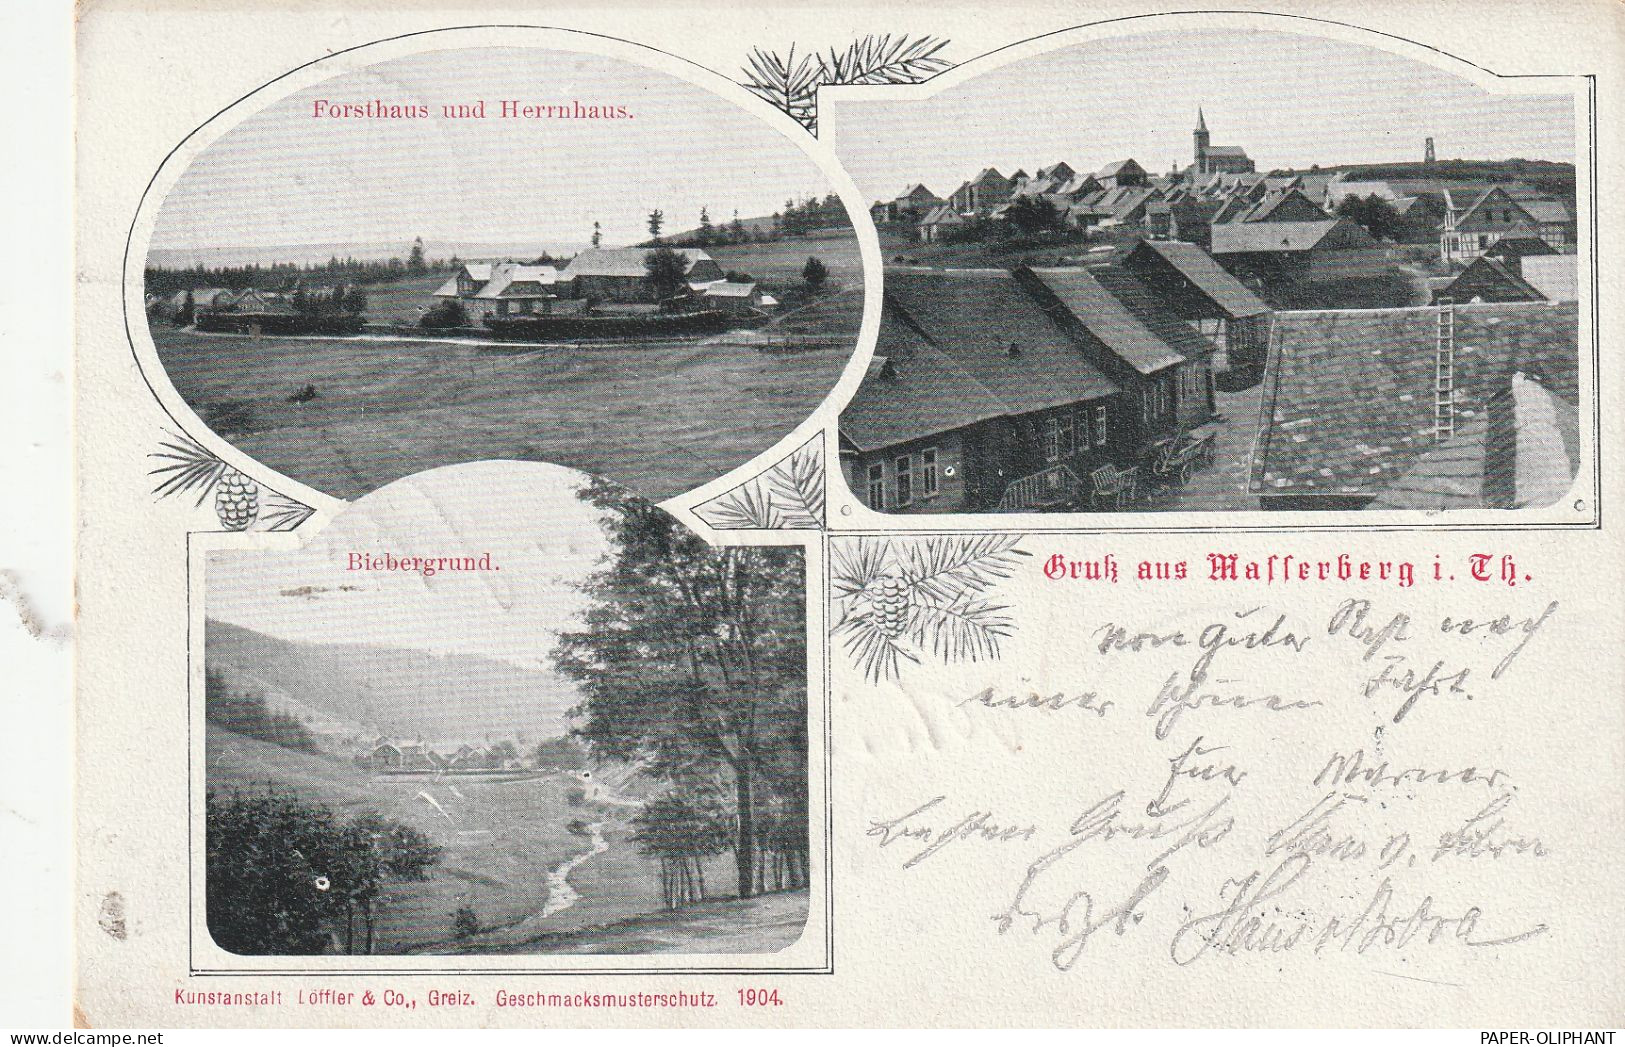 Forsthaus und Herrnhaus.
Biebergrund.
Gruß aus Masserberg i. Th.
Von guter Rast nach
einer schönen Fahrt.
Für Werner.
Besten Gruß
herzl.
Kunstanstalt Löffler & Co., Greiz. Geschmacksmusterschutz. 1904.
PAPER-OLIPHANT